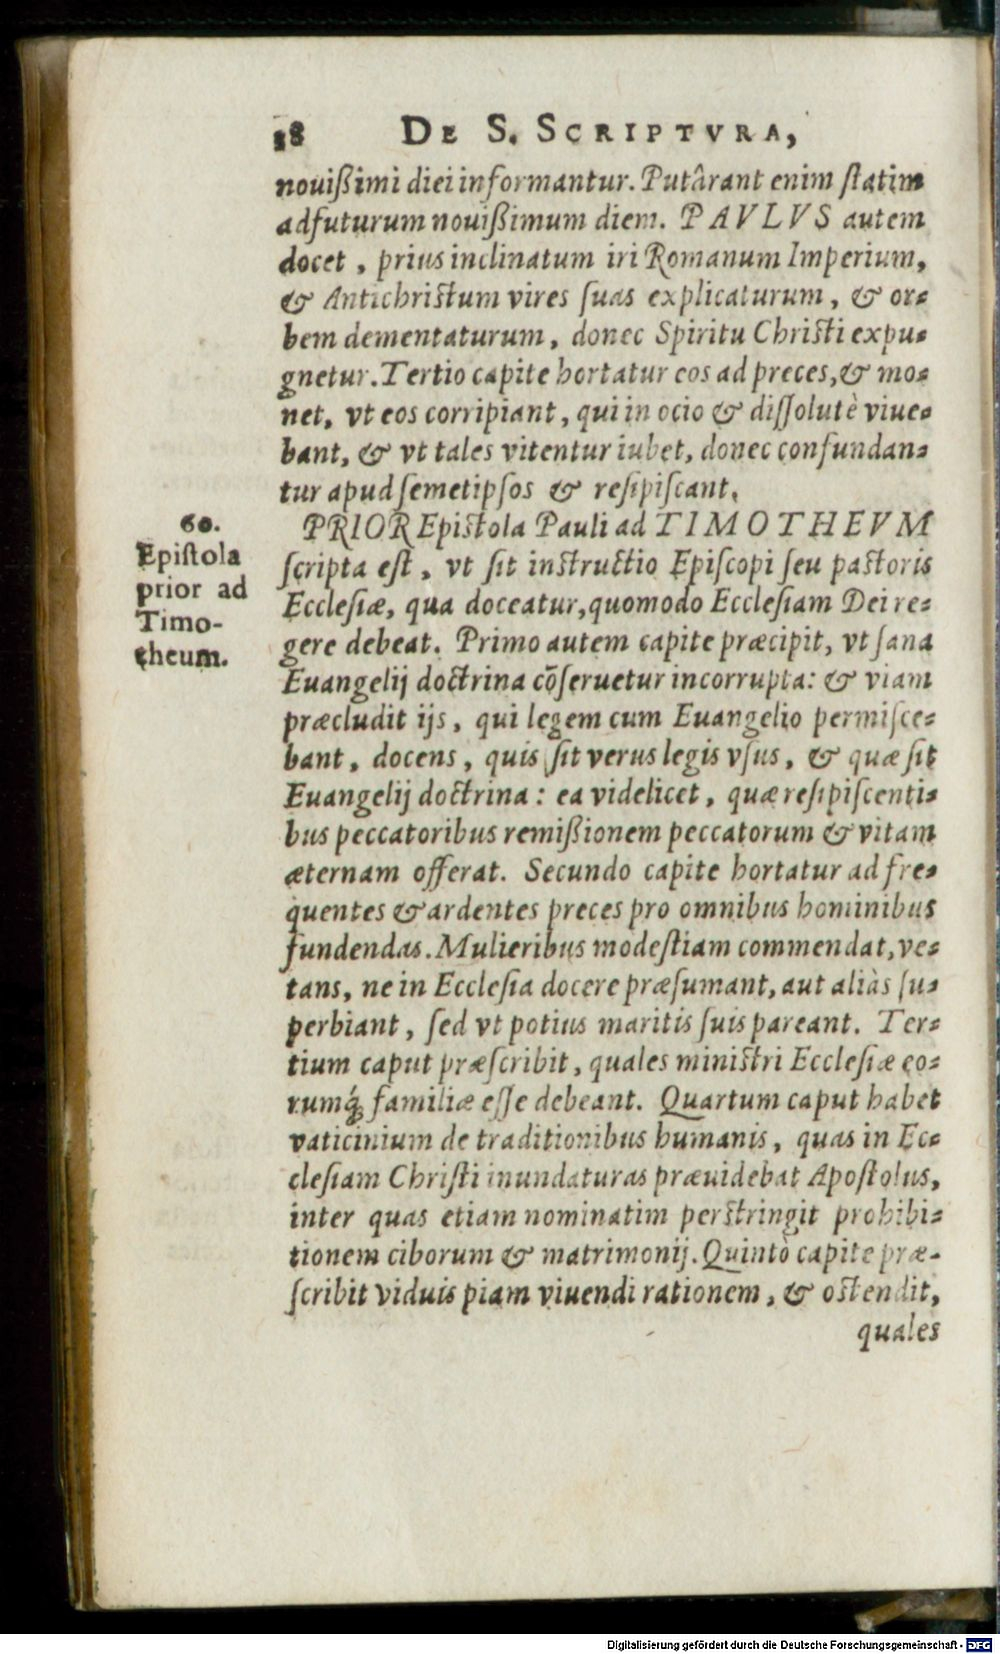 38 DE S. SCRIPTVRA,
nouißimi diei informantur. Putârant enim ſtatim
adfuturum nouißimum diem. PAVLVS autem
docet, prius inclinatum iri Romanum Imperium,
& Antichriſtum vires ſuas explicaturum, & or-
bem dementaturum, donec Spiritu Chriſti expu-
gnetur. Tertio capite hortatur eos ad preces, & mo-
net, vt eos corripiant, qui in ocio & diſſolutè viue-
bant, & vt tales vitentur iubet, donec confundan-
tur apud ſemetipſos & reſipiſcant.
60.
Epiſtola
prior ad
Timo-
theum.
PRIOR Epiſtola Pauli ad TIMOTHEVM
ſcripta eſt, vt ſit inſtructio Epiſcopi ſeu paſtoris
Eccleſiæ, qua doceatur, quomodo Eccleſiam Dei re-
gere debeat. Primo autem capite præcipit, vt ſana
Euangelij doctrina cõſeruetur incorrupta: & viam
præcludit ijs, qui legem cum Euangelio permiſce-
bant, docens, quis ſit verus legis vſus, & quæ ſit
Euangelij doctrina: ea videlicet, quæ reſipiſcenti-
bus peccatoribus remißionem peccatorum & vitam
æternam offerat. Secundo capite hortatur ad fre-
quentes & ardentes preces pro omnibus hominibus
fundendas. Mulieribus modeſtiam commendat, ve-
tans, ne in Eccleſia docere præſumant, aut aliàs ſu-
perbiant, ſed vt potius maritis ſuis pareant. Ter-
tium caput præſcribit, quales miniſtri Eccleſiæ eo-
rumq́ꝫ familiæ eſſe debeant. Quartum caput habet
vaticinium de traditionibus humanis, quas in Ec-
cleſiam Chriſti inundaturas præuidebat Apoſtolus,
inter quas etiam nominatim perſtringit prohibi-
tionem ciborum & matrimonij. Quintò capite præ-
ſcribit viduis piam viuendi rationem, & oſtendit,
quales
Digitalisierung gefördert durch die Deutsche Forschungsgemeinschaft - DFG